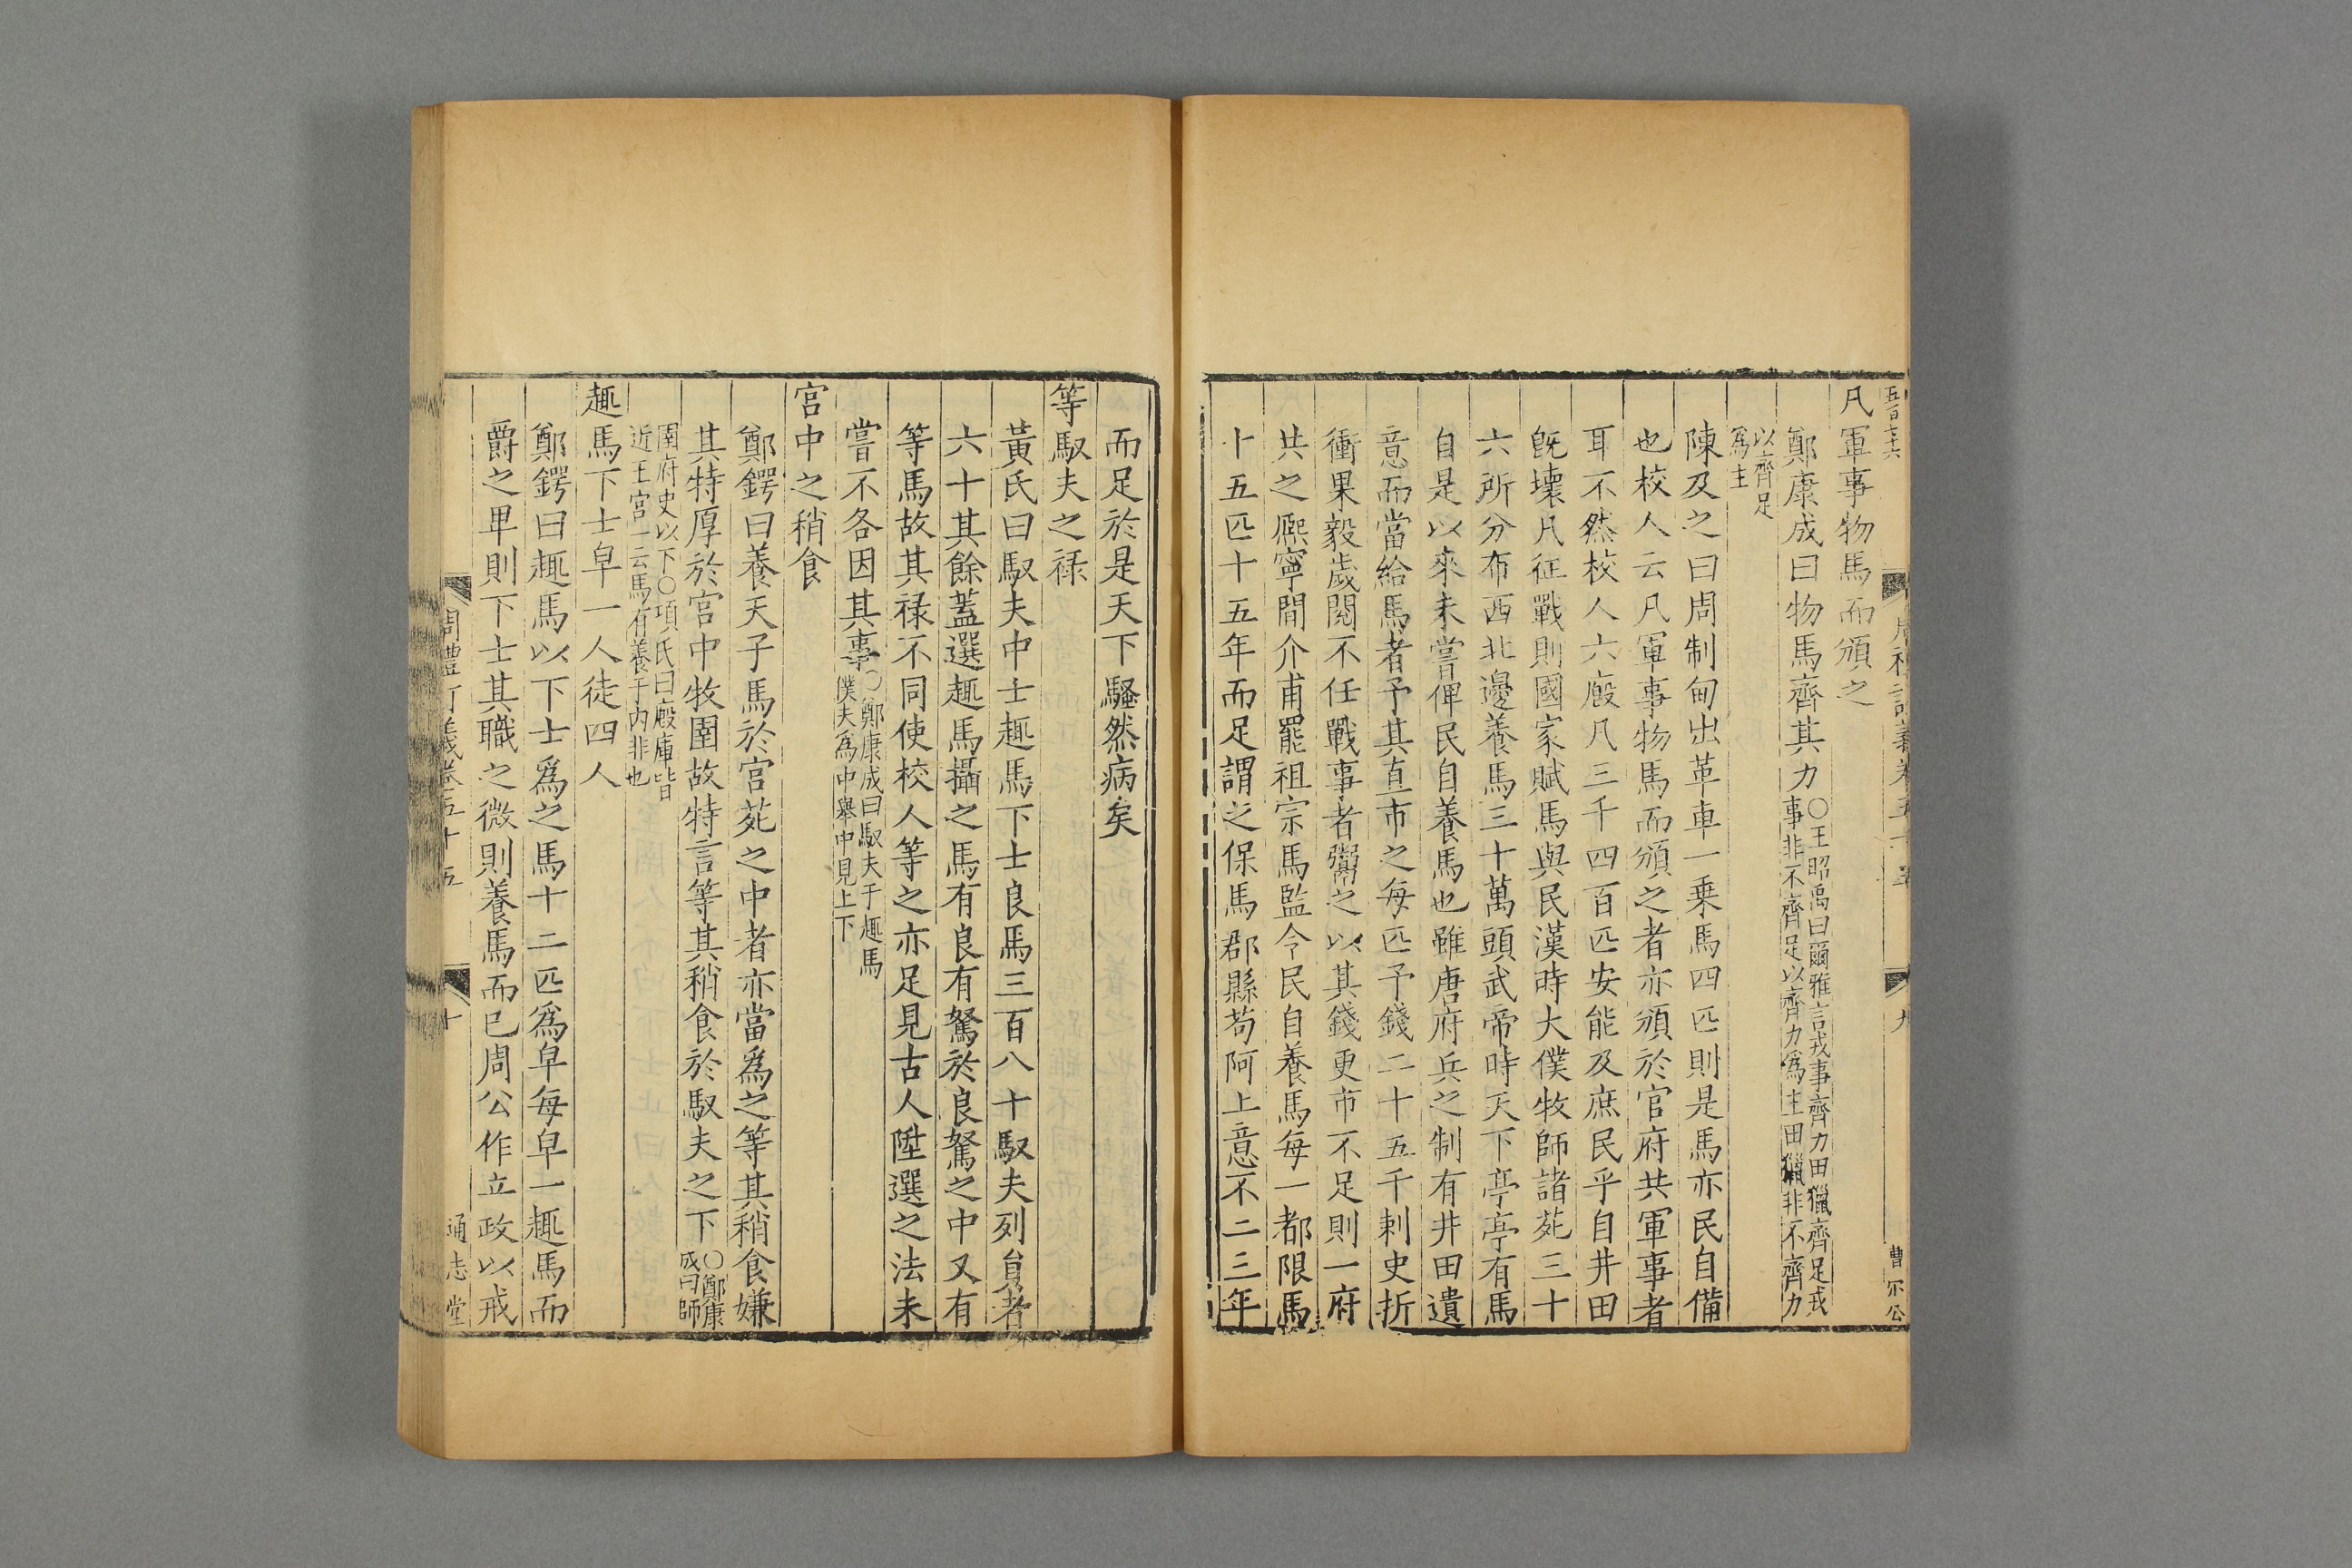 五百七十六
周禮訂義卷五十五
九
曹尔公
凡軍事物馬而頒之
鄭康成曰物馬齊其力
○王昭禹曰爾雅言戎事齊力田獵齊足戎
事非不齊足以齊力爲主田獵非不齊力
以齊足
爲主
陳及之曰周制甸出革車一乗馬四匹則是馬亦民自備
也校人云凡軍事物馬而頒之者亦頒於官府共軍事者
耳不然校人六廄凡三千四百匹安能及庶民乎自井田
旣壞凡征戰則國家賦馬與民漢時大僕牧師諸苑三十
六所分布西北邊養馬三十萬頭武帝時天下亭亭有馬
自是以來未嘗俾民自養馬也雖唐府兵之制有井田遺
意而當給馬者予其直市之每匹予錢二十五千刺史折
衝果毅歲閱不任戰事者鬻之以其錢更市不足則一府
共之熈寧間介甫罷祖宗馬監令民自養馬每一都限馬
十五匹十五年而足謂之保馬郡縣苟阿上意不二三年
而足於是天下騷然病矣
等馭夫之禄
黃氏曰馭夫中士趣馬下士良馬三百八十馭夫列員者
六十其餘蓋選趣馬攝之馬有良有駑於良駑之中又有
等馬故其禄不同使校人等之亦足見古人陞選之法未
嘗不各因其事
○鄭康成曰馭夫于趣馬
僕夫爲中舉中見上下
宮中之稍食
鄭鍔曰養天子馬於宮苑之中者亦當爲之等其稍食嫌
其特厚於宮中牧圉故特言等其稍食於馭夫之下
○鄭康
成曰師
圉府史以下○項氏曰廄庫皆
近王宮一云馬有養于内非也
趣馬下士皁一人徒四人
鄭鍔曰趣馬以下士爲之馬十二匹爲皁每皁一趣馬而
爵之卑則下士其職之微則養馬而已周公作立政以戒
周禮訂義卷五十五
十
通志堂